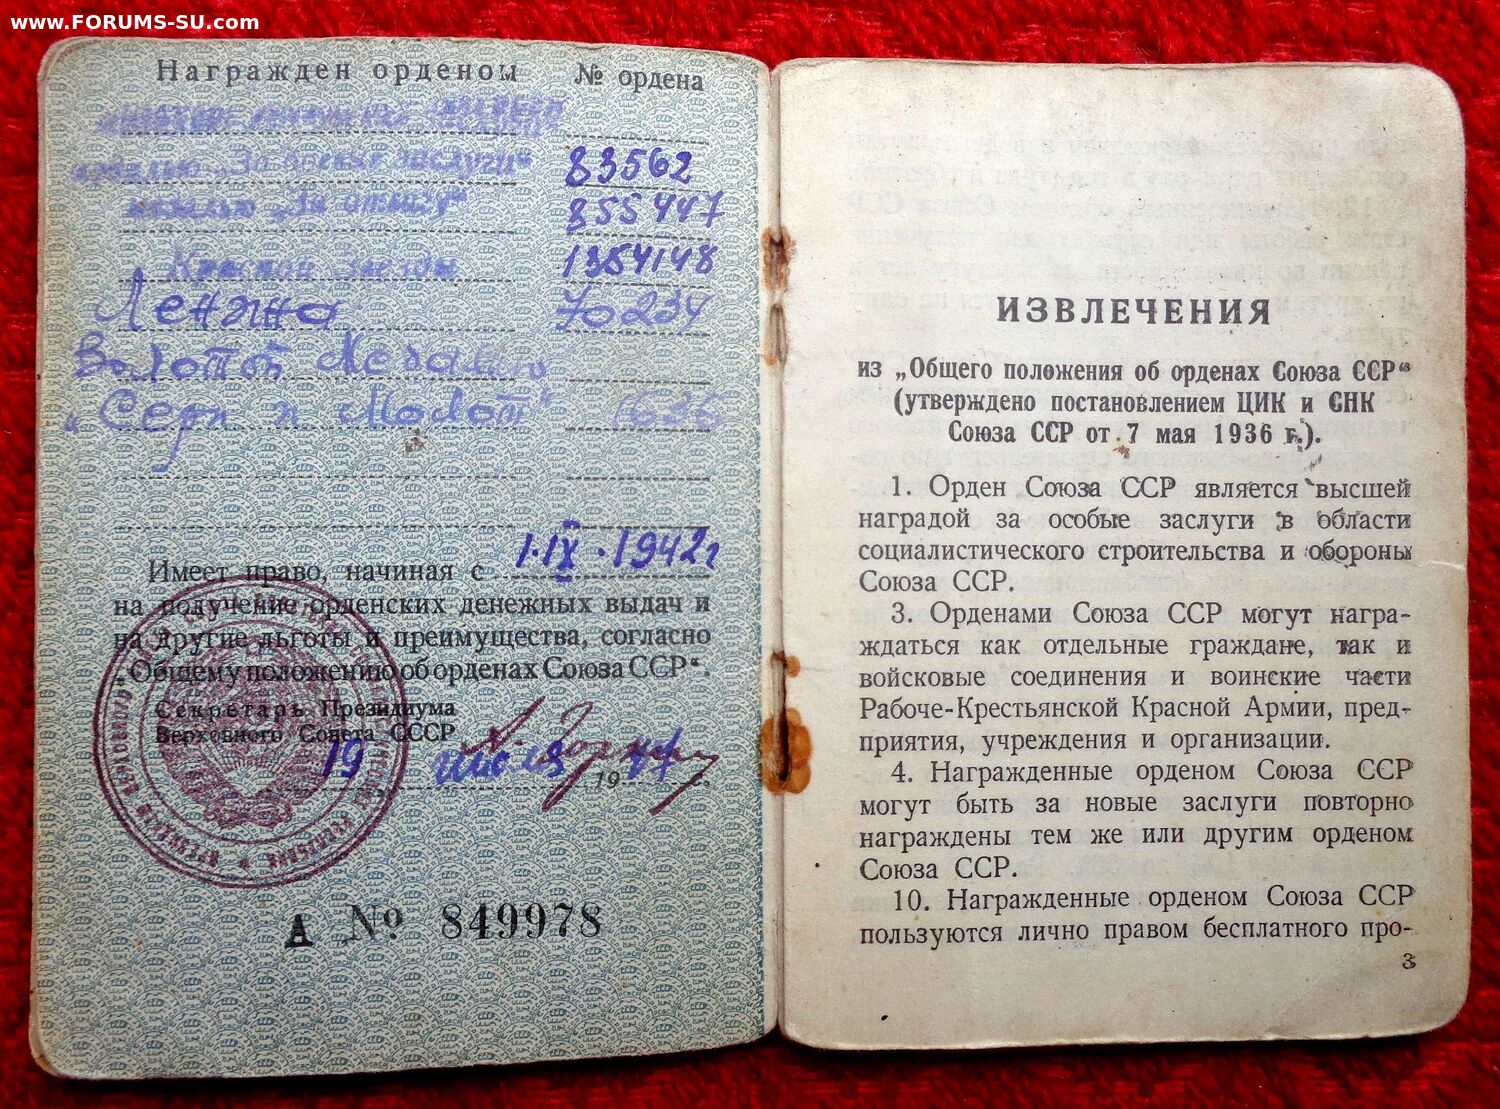 www.FORUMS-SU.com
Награжден орденом № ордена
медалью „За боевые заслуги“ 83562
медалью „За отвагу“ 855447
Красной Звезды 1354148
Ленина 70234
Золотой Медалью
„Серп и Молот“
Имеет право, начиная с 1·IX·1942г
на получение орденских денежных выдач и
на другие льготы и преимущества, согласно
„Общему положению об орденах Союза ССР“.
Секретарь Президиума
Верховного Совета СССР
19 июля 19
А № 849978
ИЗВЛЕЧЕНИЯ
из „Общего положения об орденах Союза ССР“
(утверждено постановлением ЦИК и СНК
Союза ССР от 7 мая 1936 г.).
1. Орден Союза ССР является высшей
наградой за особые заслуги в области
социалистического строительства и обороны
Союза ССР.
3. Орденами Союза ССР могут награ-
ждаться как отдельные граждане, так и
войсковые соединения и воинские части
Рабоче-Крестьянской Красной Армии, пред-
приятия, учреждения и организации.
4. Награжденные орденом Союза ССР
могут быть за новые заслуги повторно
награждены тем же или другим орденом
Союза ССР.
10. Награжденные орденом Союза ССР
пользуются лично правом бесплатного про-
3